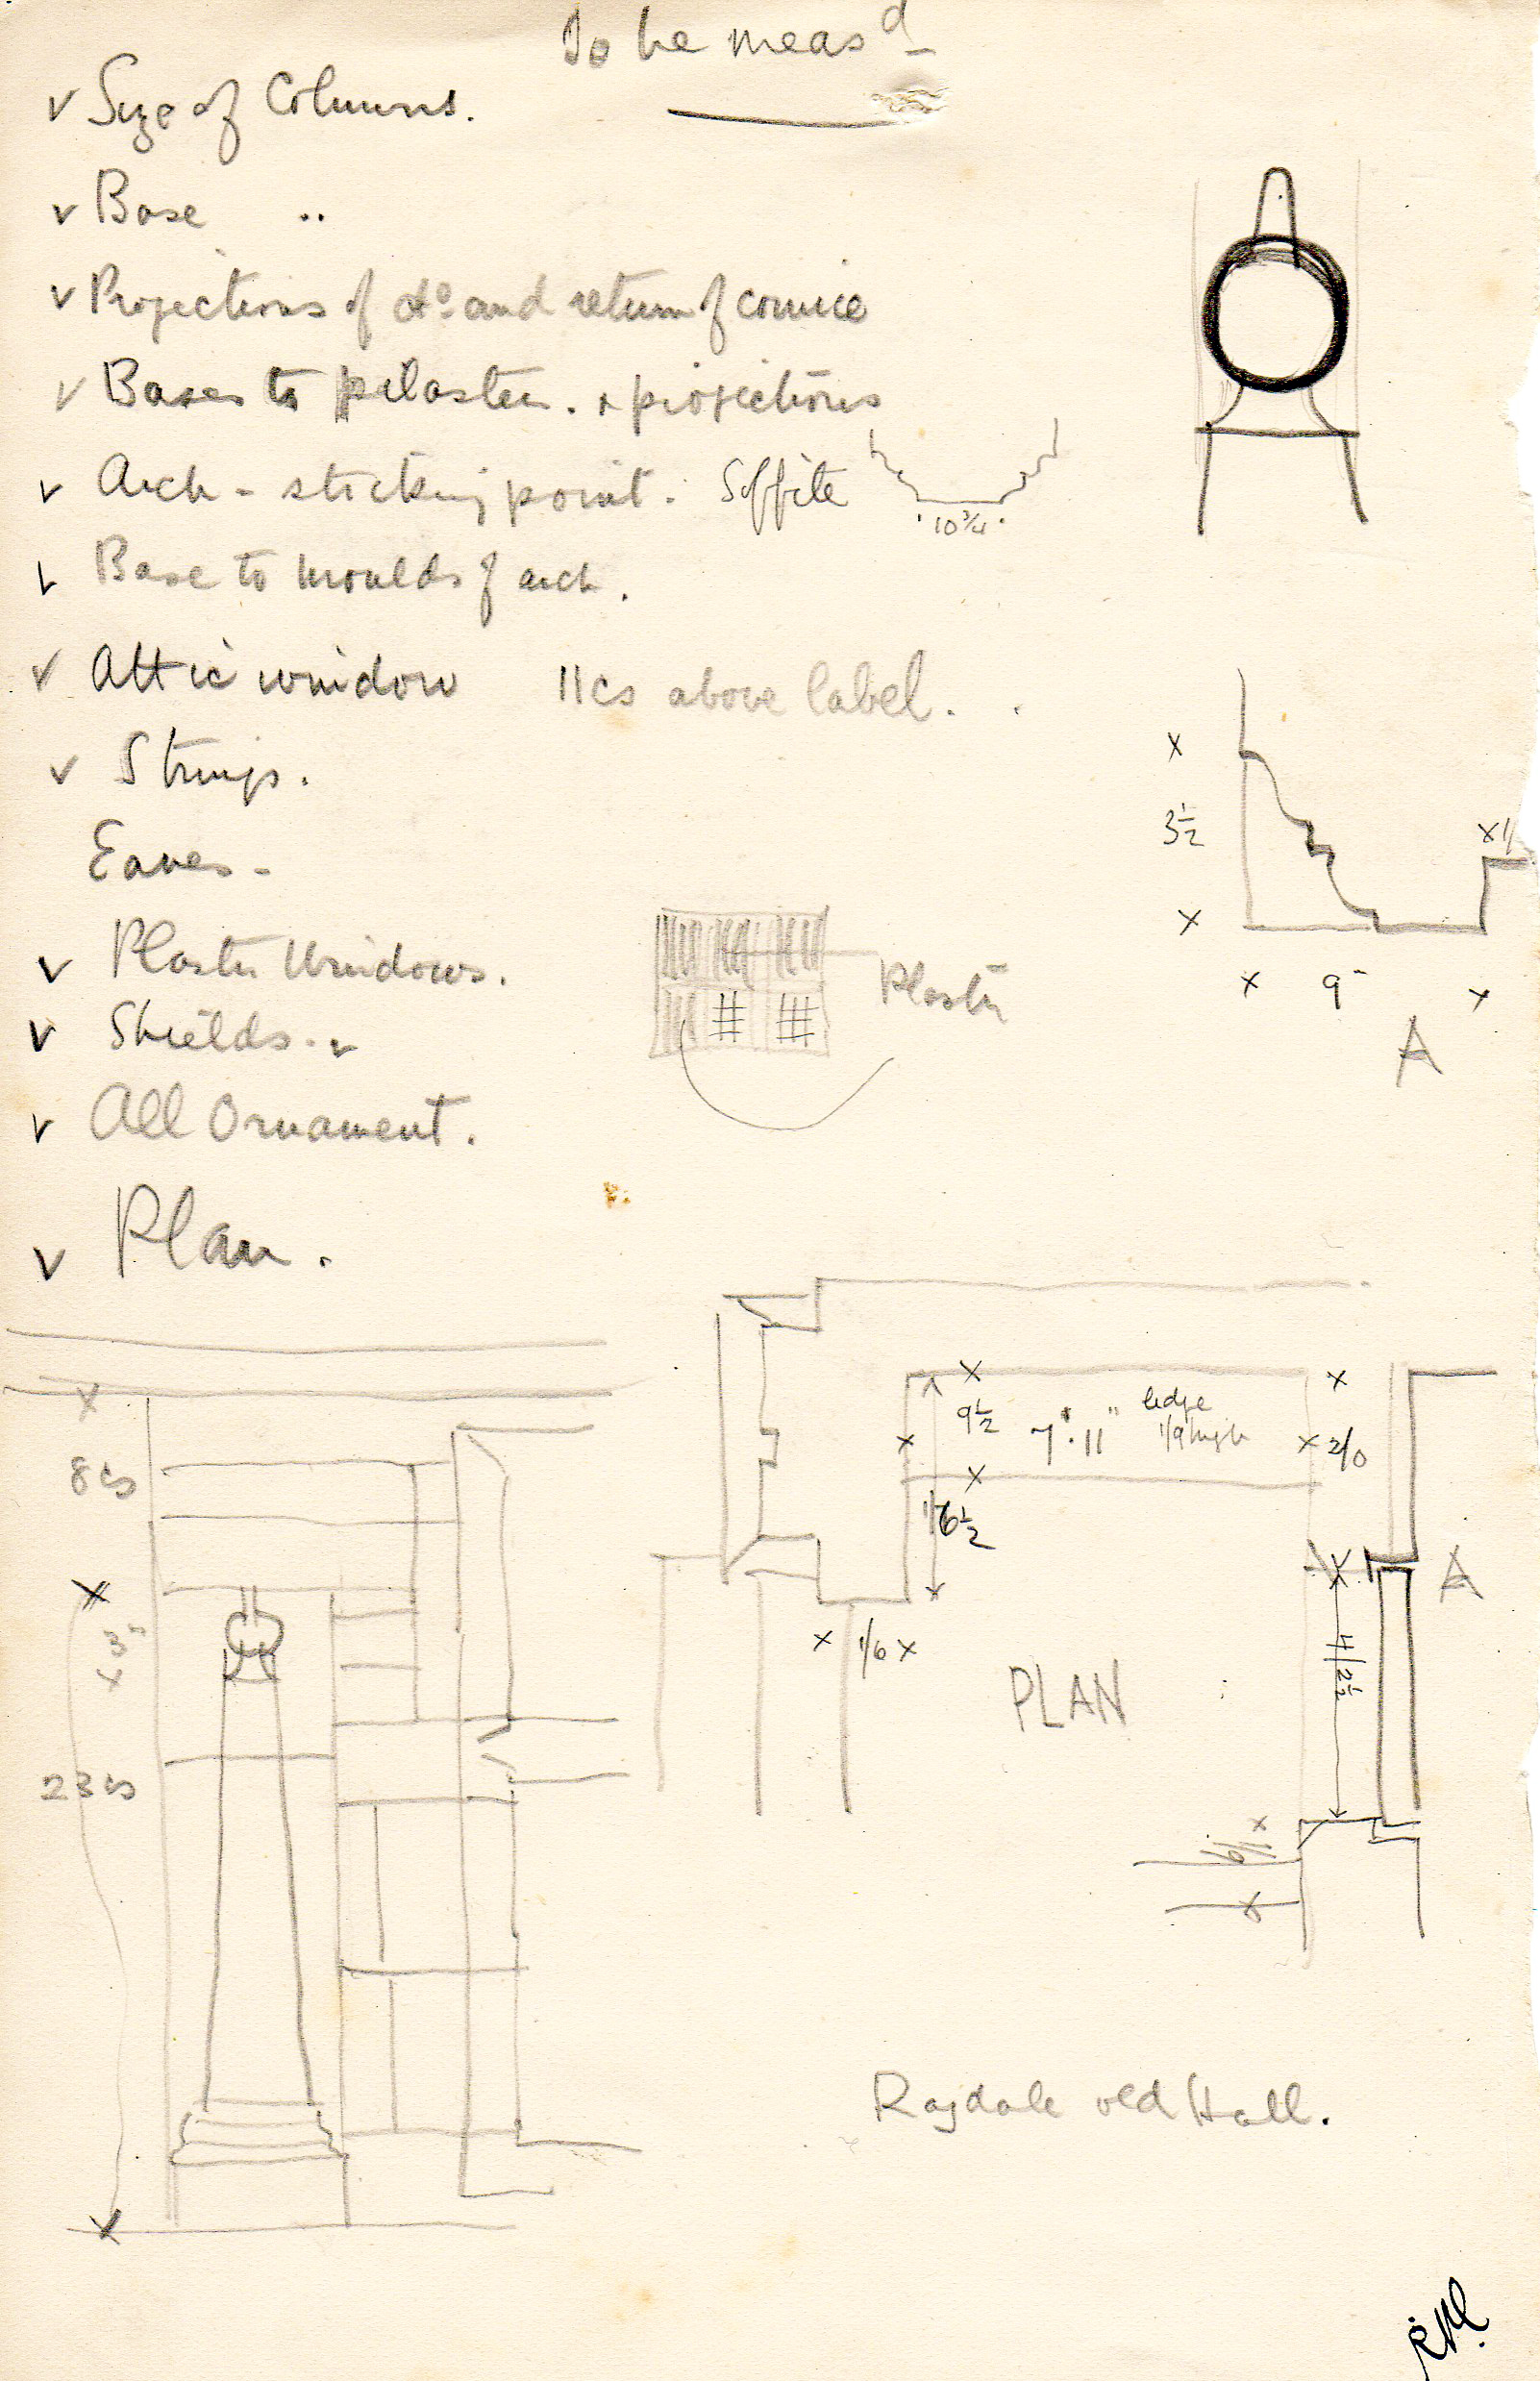 To be meas^d
v Size of Columns.
v Base "
v Projections of do and return of cornice
v Bases to pilasters. + projections
v Arch - sticking point. Soffite
10 3/4
v Base to moulds of arch.
v Attic window 11cs above label.
v Strings.
Eaves -
v Plaster Windows.
Plaster
v Shields. v
v All Ornament.
v Plan.
x
3 1/2
x
x 9" x
A
x
8 cs
x
3"
x
23 cs
x
x
9 1/2
x
7'.11"
ledge
1/9 high
x
x 2/0
x
1/6 1/2
x 1/6 x
A
A
4/2 1/2
PLAN
x
x
Ragdale old Hall.